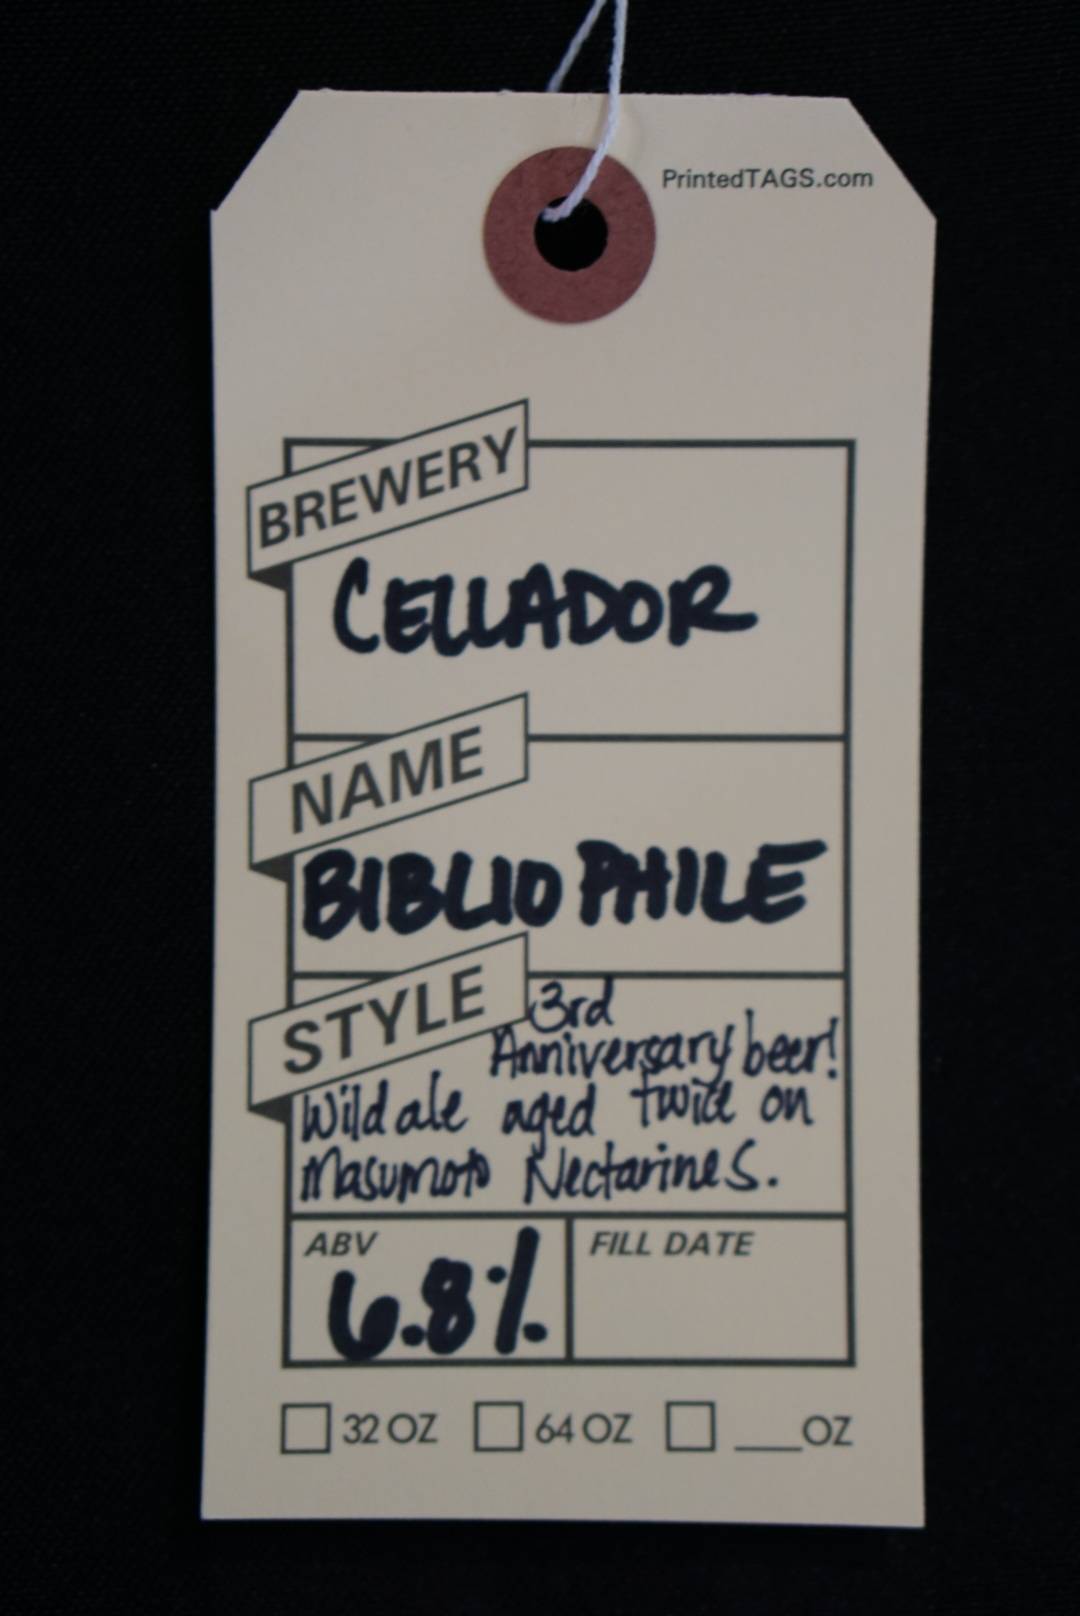 PrintedTAGS.com
BREWERY
CELLADOR
NAME
BIBLIOPHILE
STYLE
3rd
Anniversary beer!
Wild ale aged twice on
Masumoto Nectarines.
ABV
6.8%
FILL DATE
32 OZ 64 OZ ___OZ